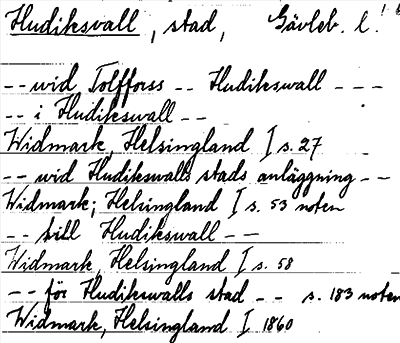 Hudiksvall, stad, Gävleb. l.
-- wid Tolfforss -- Hudikswall ---
-- i Hudikswall --
Widmark, Helsingland I s. 27
-- wid Hudikswalls stads anläggning --
Widmark, Helsingland I s. 53 noten
-- till Hudikswall --
Widmark, Helsingland I s. 58
-- för Hudikswalls stad -- s. 183 noten
Widmark, Helsingland I 1860